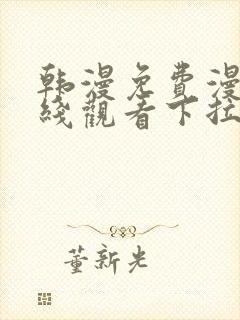 韩漫免費漫
綫觀看下拉
董新光